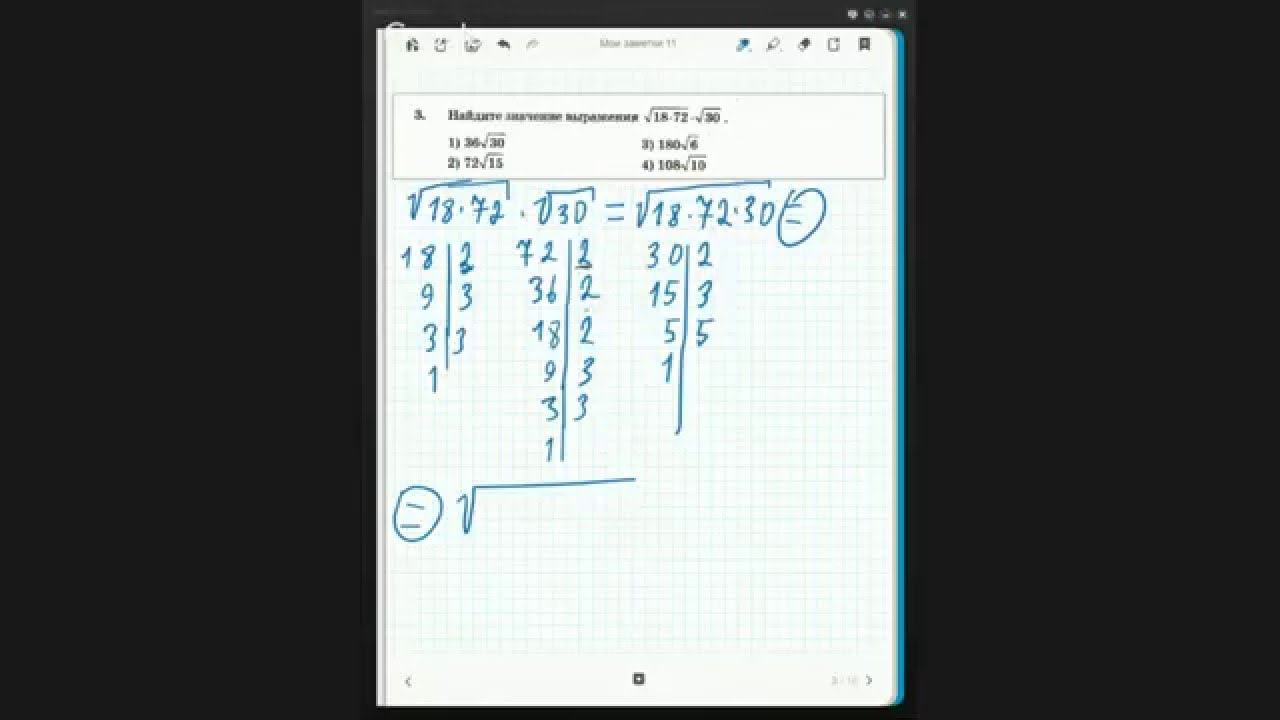 Мои заметки 11
3. Найдите значение выражения √18·72·√30.
1) 36√30
3) 180√6
2) 72√15
4) 108√10
√18·72 · √30 = √18·72·30 =
18 | 2
9 | 3
3 | 3
1
72 | 2
36 | 2
18 | 2
9 | 3
3 | 3
1
30 | 2
15 | 3
5 | 5
1
= √
3 / 16